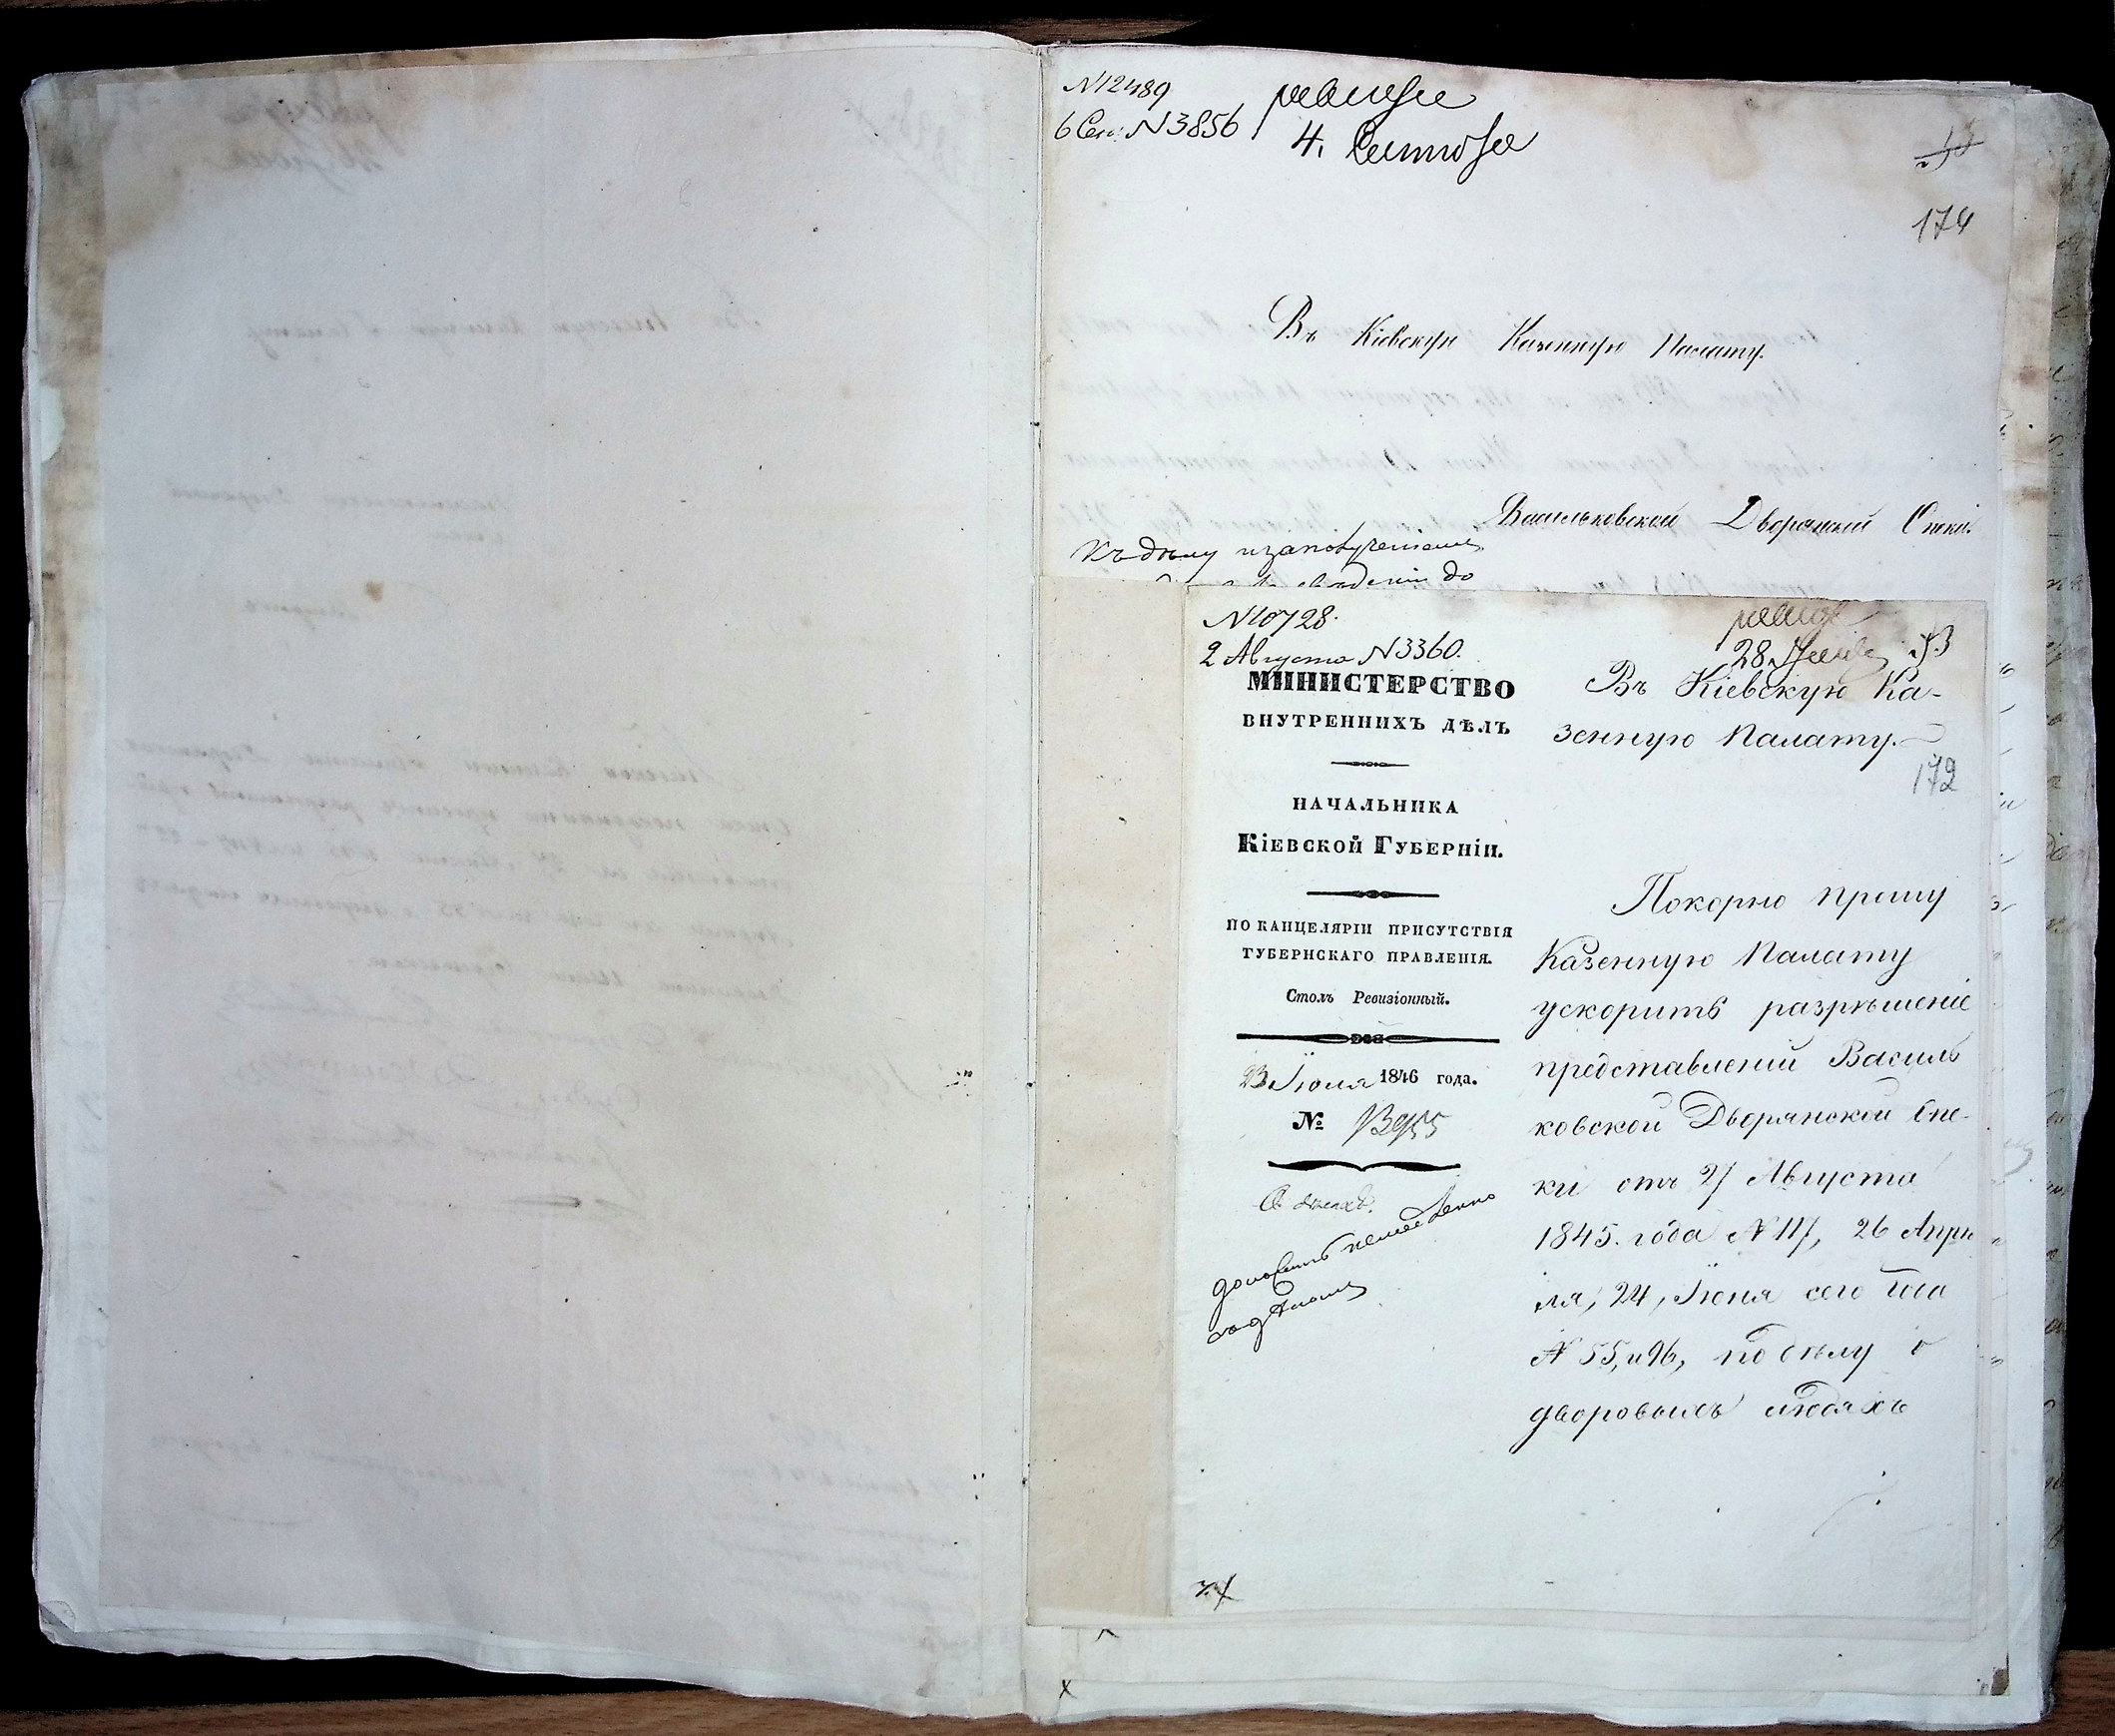 N12489
6 Сен: N3856
ревизс
4. Сентяб
174
Въ Кіевскую Казенную Палату.
Васильковской Дворянской Опеки.
Къ дѣлу и
до
N10728.
2 Августа N3360.
28
172
МИНИСТЕРСТВО
ВНУТРЕННИХЪ ДѢЛЪ
НАЧАЛЬНИКА
КІЕВСКОЙ ГУБЕРНІИ.
ПО КАНЦЕЛЯРІИ ПРИСУТСТВІЯ
ГУБЕРНСКАГО ПРАВЛЕНІЯ.
Столъ Ревизіонный.
23 Іюля 1846 года.
№ 13955
О дѣлахъ.
Въ Кіевскую Ка-
зенную Палату.
Покорно прошу
Казенную Палату
ускорить разрѣшеніе
представленій Василь
ковской Дворянской Опе-
ки отъ 27 Августа
1845. года N 117, 26 Апрѣ
ля, 24, Іюня сего года
N 55, и 96, по дѣлу о
дворовыхъ людяхъ